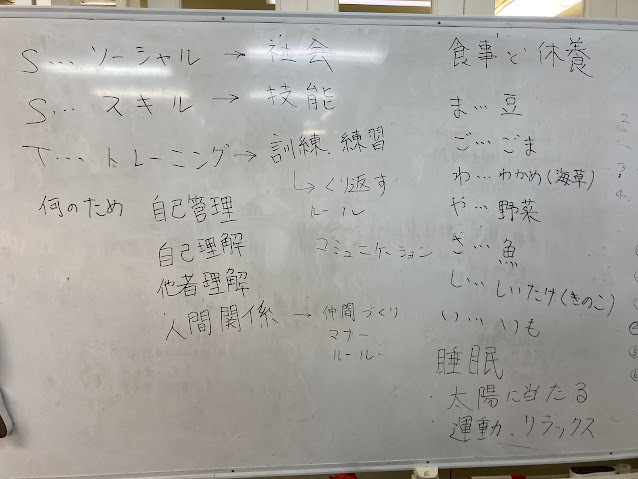 S… ソーシャル → 社会
S… スキル → 技能
T… トレーニング → 訓練、練習
↳ くり返す
ルール
何のため 自己管理
自己理解
コミュニケーション
他者理解
人間関係 → 仲間づくり
マナー
ルール
食事と休養
ま… 豆
ご… ごま
わ… わかめ(海草)
や… 野菜
さ… 魚
し… しいたけ(きのこ)
い… いも
睡眠
太陽に当たる
運動、リラックス